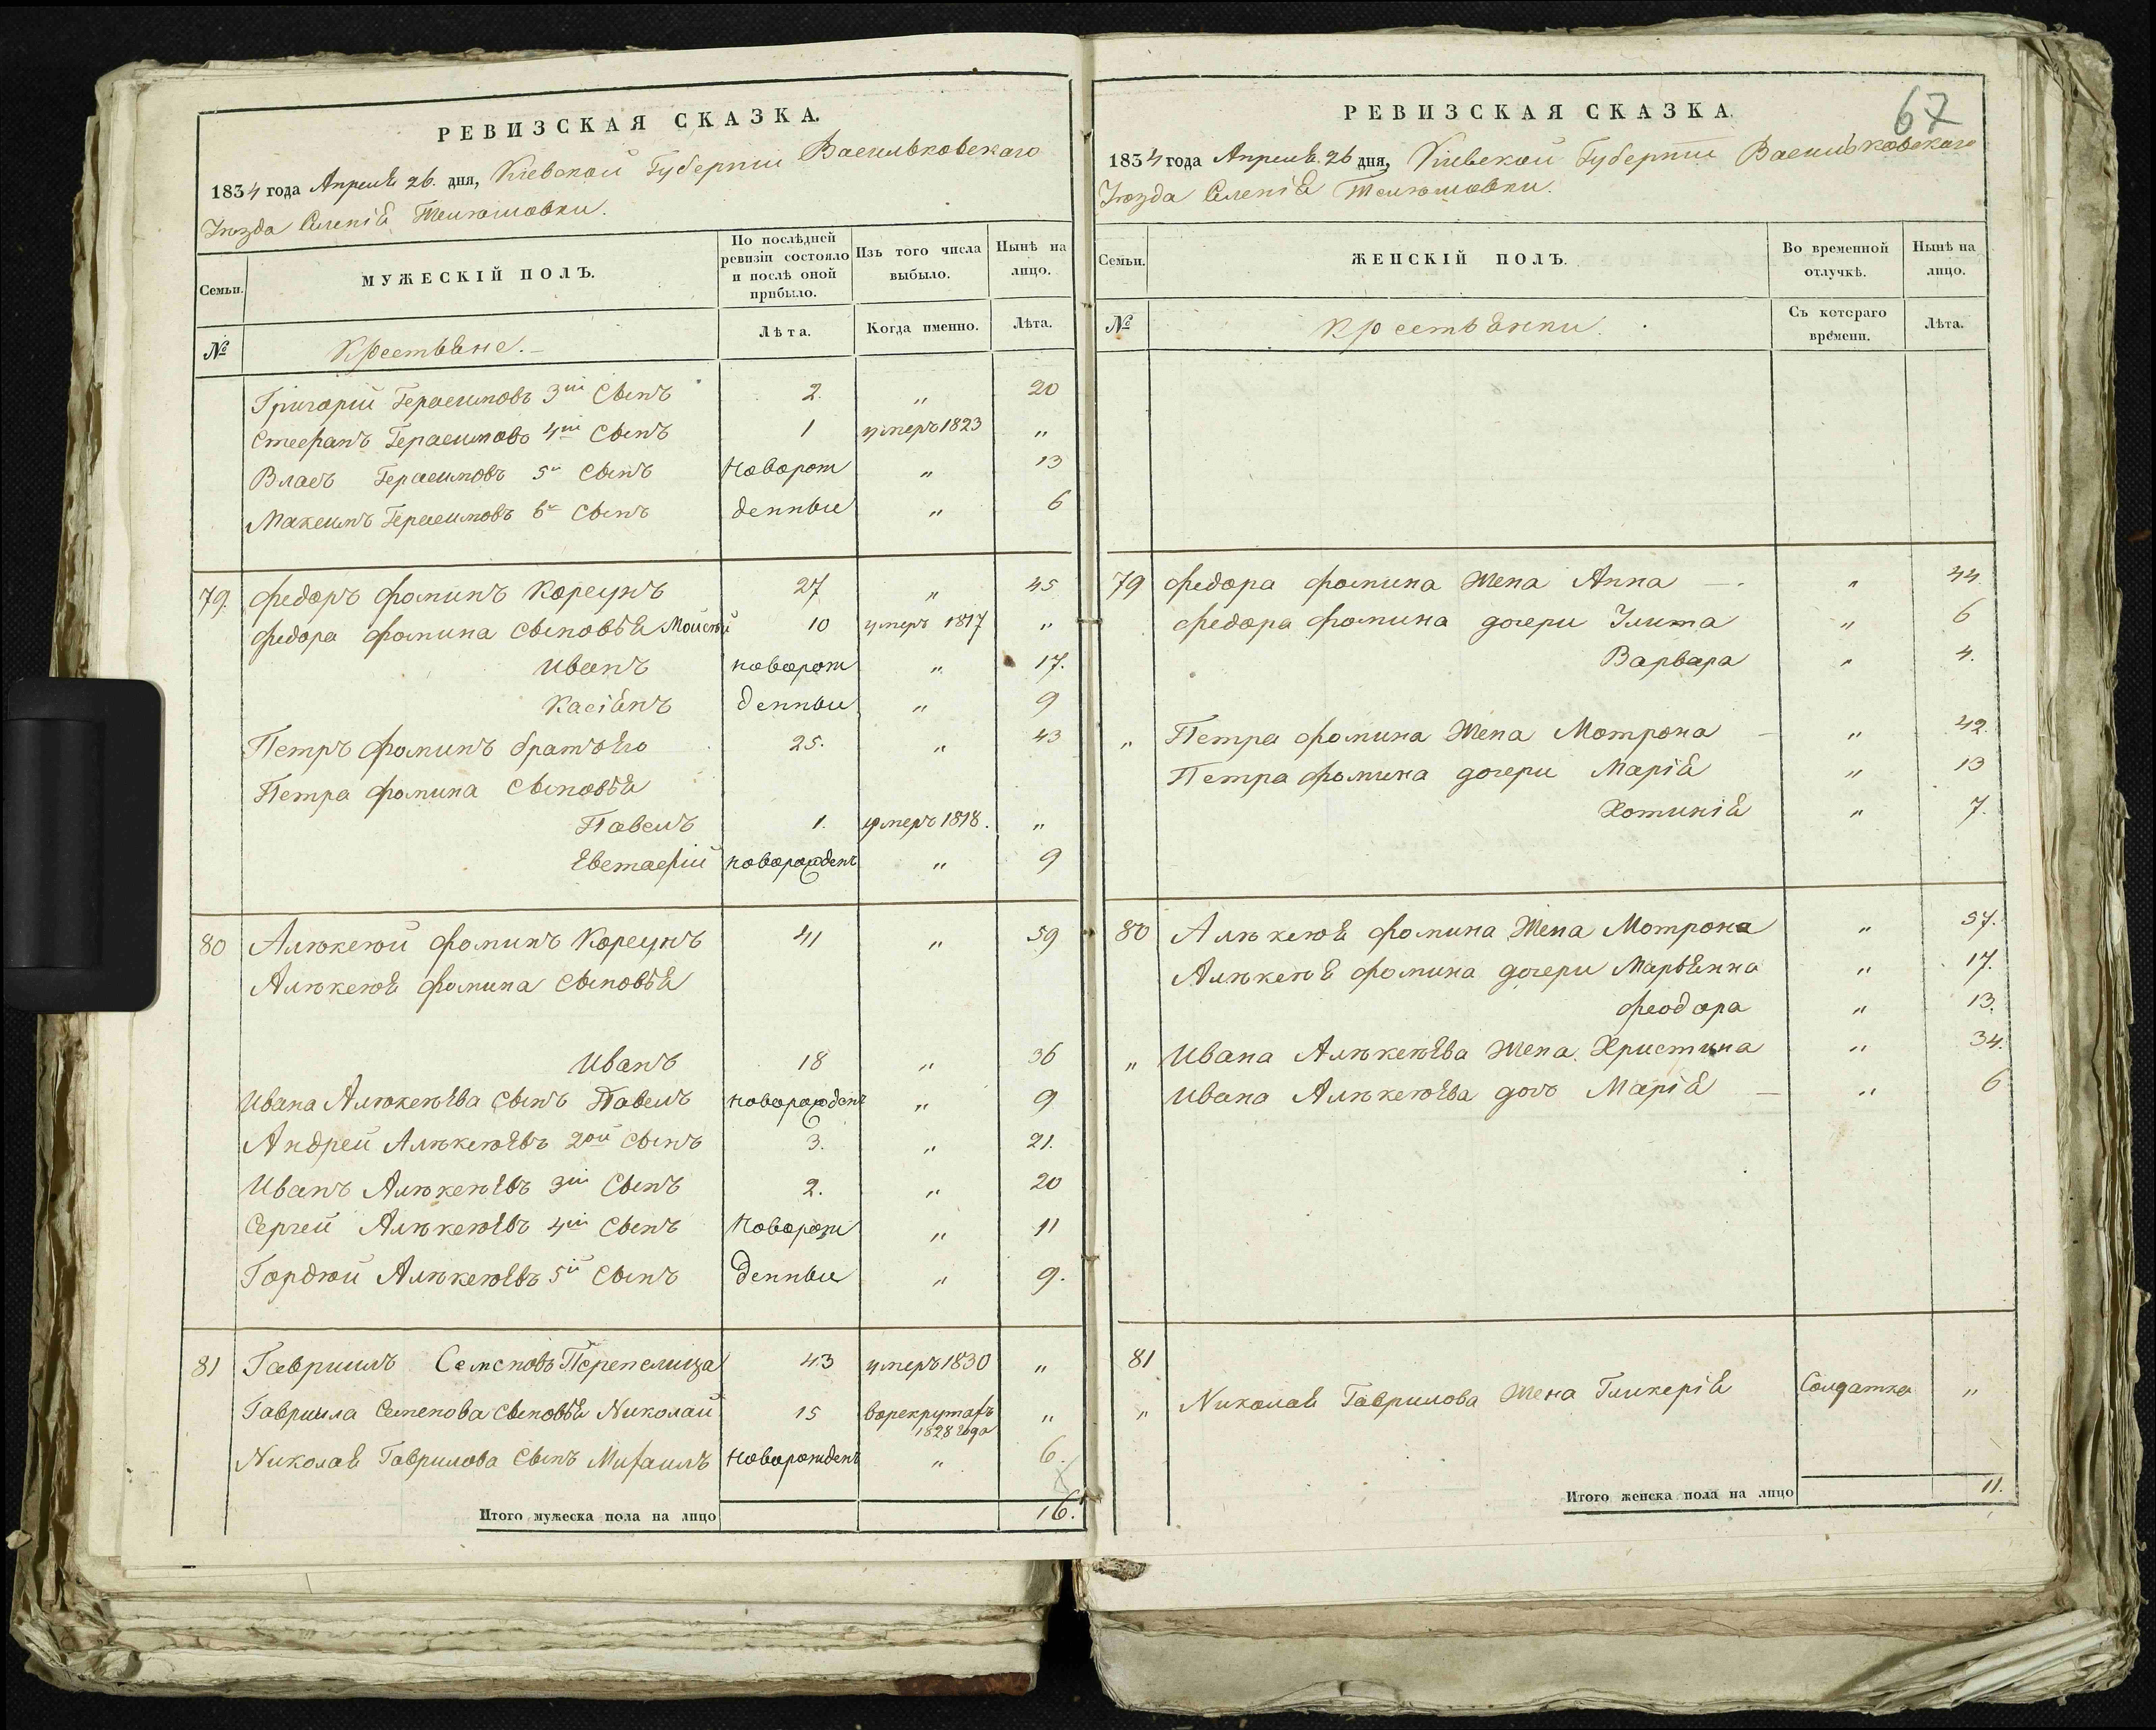 РЕВИЗСКАЯ СКАЗКА.
1834 года Апреля 26. дня, Киевской Губернии Васильковскаго
Уѣзда Селенія Телѣшовки.
Семьи.
МУЖЕСКІЙ ПОЛЪ.
По послѣдней ревизіи состояло и послѣ оной прибыло.
Изъ того числа выбыло.
Нынѣ на лицо.
№
Крестьяне.
Лѣта.
Когда именно.
Лѣта.
Григорій Герасимовъ 3ій Сынъ 2. " 20
Стефанъ Герасимовъ 4ій Сынъ 1 умеръ 1823 "
Власъ Герасимовъ 5й Сынъ Новорож " 13
Максимъ Герасимовъ 6й Сынъ денныи " 6
79. Федоръ Фоминъ Корсунъ 27 " 45
Федора Фомина Сыновья Моисѣй 10 умеръ 1817 "
Иванъ новорож " 17.
Касіянъ денныи " 9
Петръ Фоминъ братъ Его 25. " 43
Петра Фомина Сыновья
Павелъ 1. умеръ 1818. "
Евстафій новорожденъ " 9
80 Алѣксѣй Фоминъ Корсунъ 41 " 59
Алѣксѣя Фомина Сыновья
Иванъ 18 " 36
Ивана Алѣксѣева Сынъ Павелъ новорожденъ " 9
Андрей Алѣксѣевъ 2ой Сынъ 3. " 21.
Иванъ Алѣксѣевъ 3ій Сынъ 2. " 20
Сергей Алѣксѣевъ 4ій Сынъ Новорож " 11
Гордѣй Алѣксѣевъ 5й Сынъ денныи " 9.
81 Гавриилъ Семеновъ Перепелица 43 умеръ 1830 "
Гавриила Семенова Сыновья Николай 15 врекрутахъ 1828 года "
Николая Гаврилова Сынъ Михаилъ Новорожденъ " 6.
Итого мужеска пола на лицо 16.
67
РЕВИЗСКАЯ СКАЗКА.
1834 года Апреля. 26 дня, Киевской Губерніи Васильковскаго
Уѣзда Селенія Телѣшовки.
Семьи.
ЖЕНСКІЙ ПОЛЪ.
Во временной отлучкѣ.
Нынѣ на лицо.
№
Крестьянки.
Съ котораго времени.
Лѣта.
79 Федора Фомина Жена Анна " 44.
Федора Фомина дочери Улита " 6
Варвара " 4.
" Петра Фомина Жена Мотрона " 42.
Петра Фомина дочери Марія " 13
Хотинія " 7.
80 Алѣксѣя Фомина Жена Мотрона " 57.
Алѣксѣя Фомина дочери Марьянна " 17.
Феодора " 13.
" Ивана Алѣксѣева Жена Христина " 34.
Ивана Алѣксѣева дочь Марія " 6
81
" Николая Гаврилова Жена Гликерія Солдатка "
Итого женска пола на лицо 11.